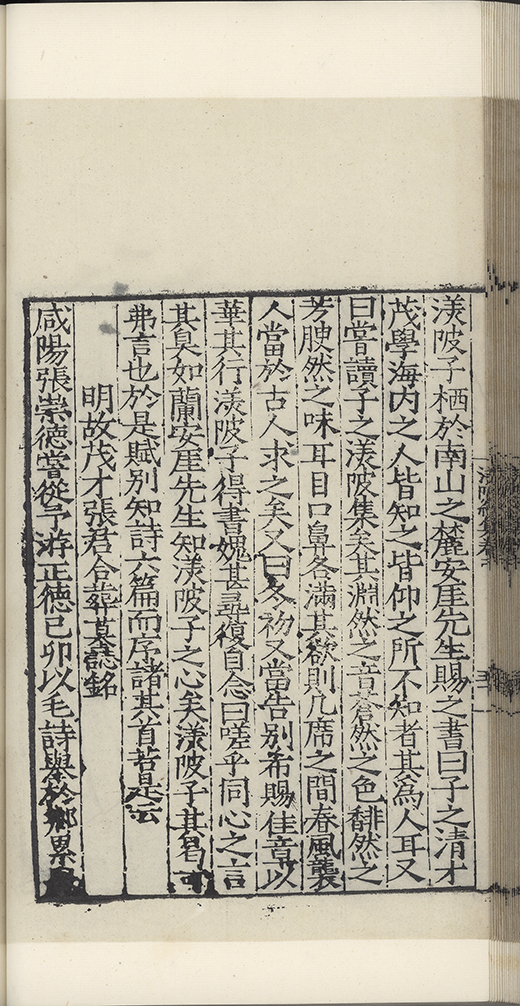 渼陂子栖於南山之麓安厓先生賜之書曰子之清才
茂學海内之人皆知之皆仰之所不知者其為人耳又
曰嘗讀子之渼陂集矣其淵然之音蒼然之色馡然之
芳腴然之味耳目口鼻各滿其欲則几席之間春風襲
人當於古人求之矣又曰冬初又當告别希賜佳章以
華其行渼陂子得書媿甚尋復自念曰嗟乎同心之言
其臭如蘭安厓先生知渼陂子之心矣渼陂子其曷可
弗言也於是賦别知詩六篇而序諸其首若是云
明故茂才張君合葬墓誌銘
咸陽張崇德嘗從予游正德己卯以毛詩舉於鄉累